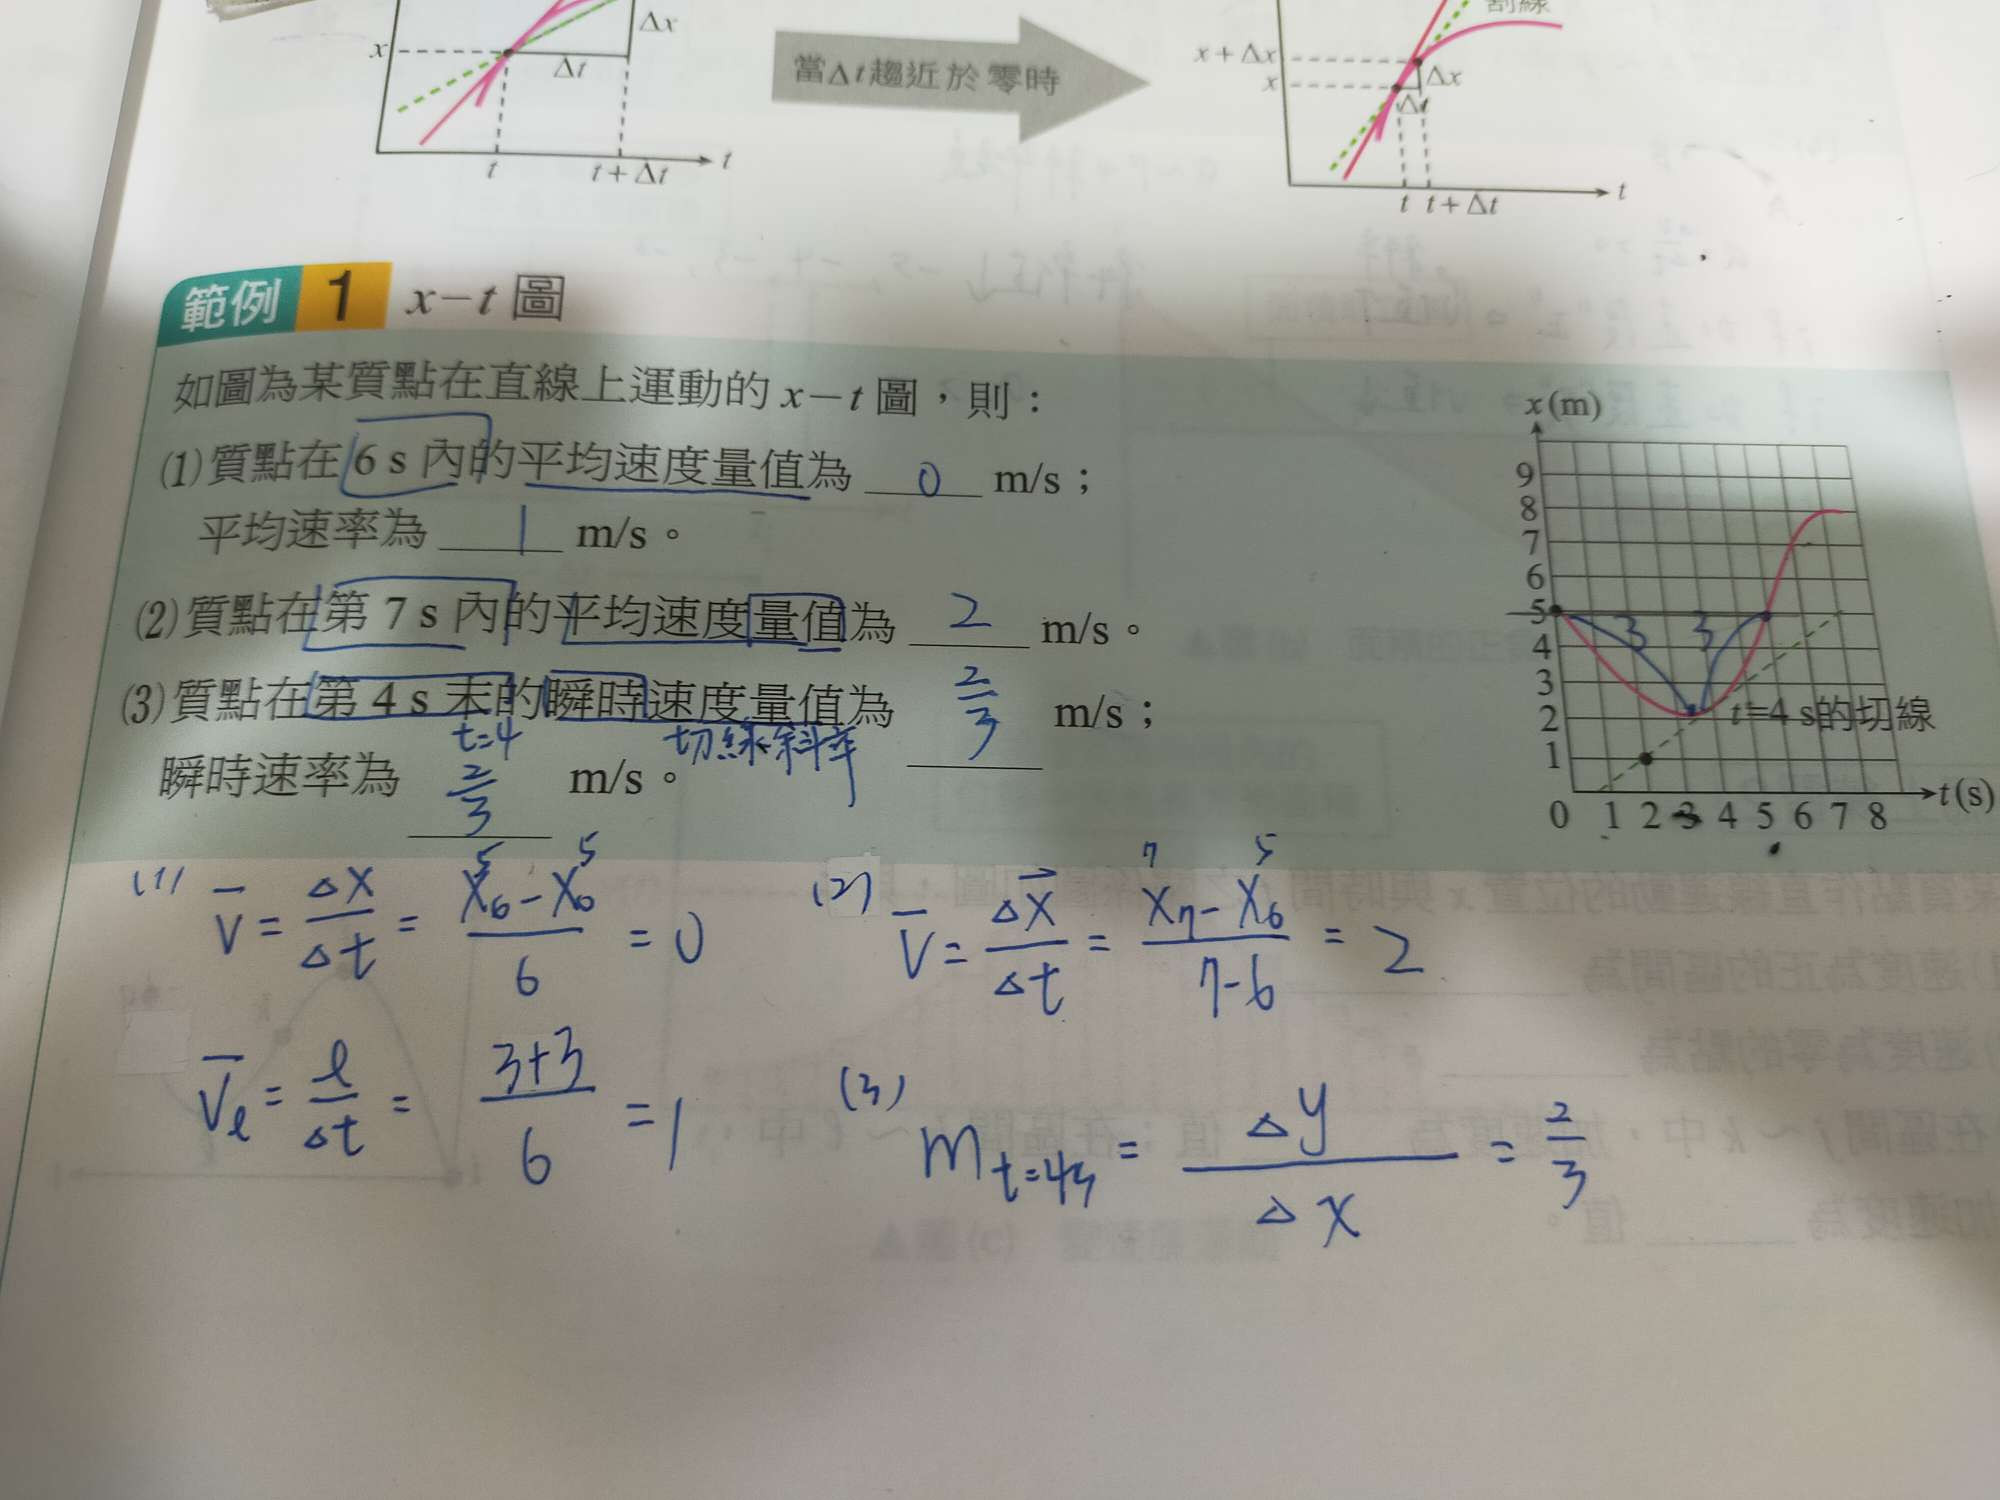 x
Δx
Δt
t
t + Δt
t
當Δt趨近於零時
割線
x + Δx
x
Δx
Δt
t
t + Δt
t
範例 1 x－t 圖
如圖為某質點在直線上運動的 x－t 圖，則：
(1)質點在 6 s 內的平均速度量值為 0 m/s；
平均速率為 1 m/s。
(2)質點在第 7 s 內的平均速度量值為 2 m/s。
(3)質點在第 4 s 末的瞬時速度量值為 2/3 m/s；
t=4 切線斜率
瞬時速率為 2/3 m/s。
x(m)
9
8
7
6
5
4
3
2
1
3 3
t=4 s的切線
0 1 2 3 4 5 6 7 8
t(s)
(1) V̅ = Δx/Δt = (X₆ - X₀)/6 = 0
5 5
V̅ℓ = ℓ/Δt = (3+3)/6 = 1
(2) V̅ = Δx⃗/Δt = (X₇ - X₆)/(7-6) = 2
7 5
(3) m t=4s = Δy/Δx = 2/3